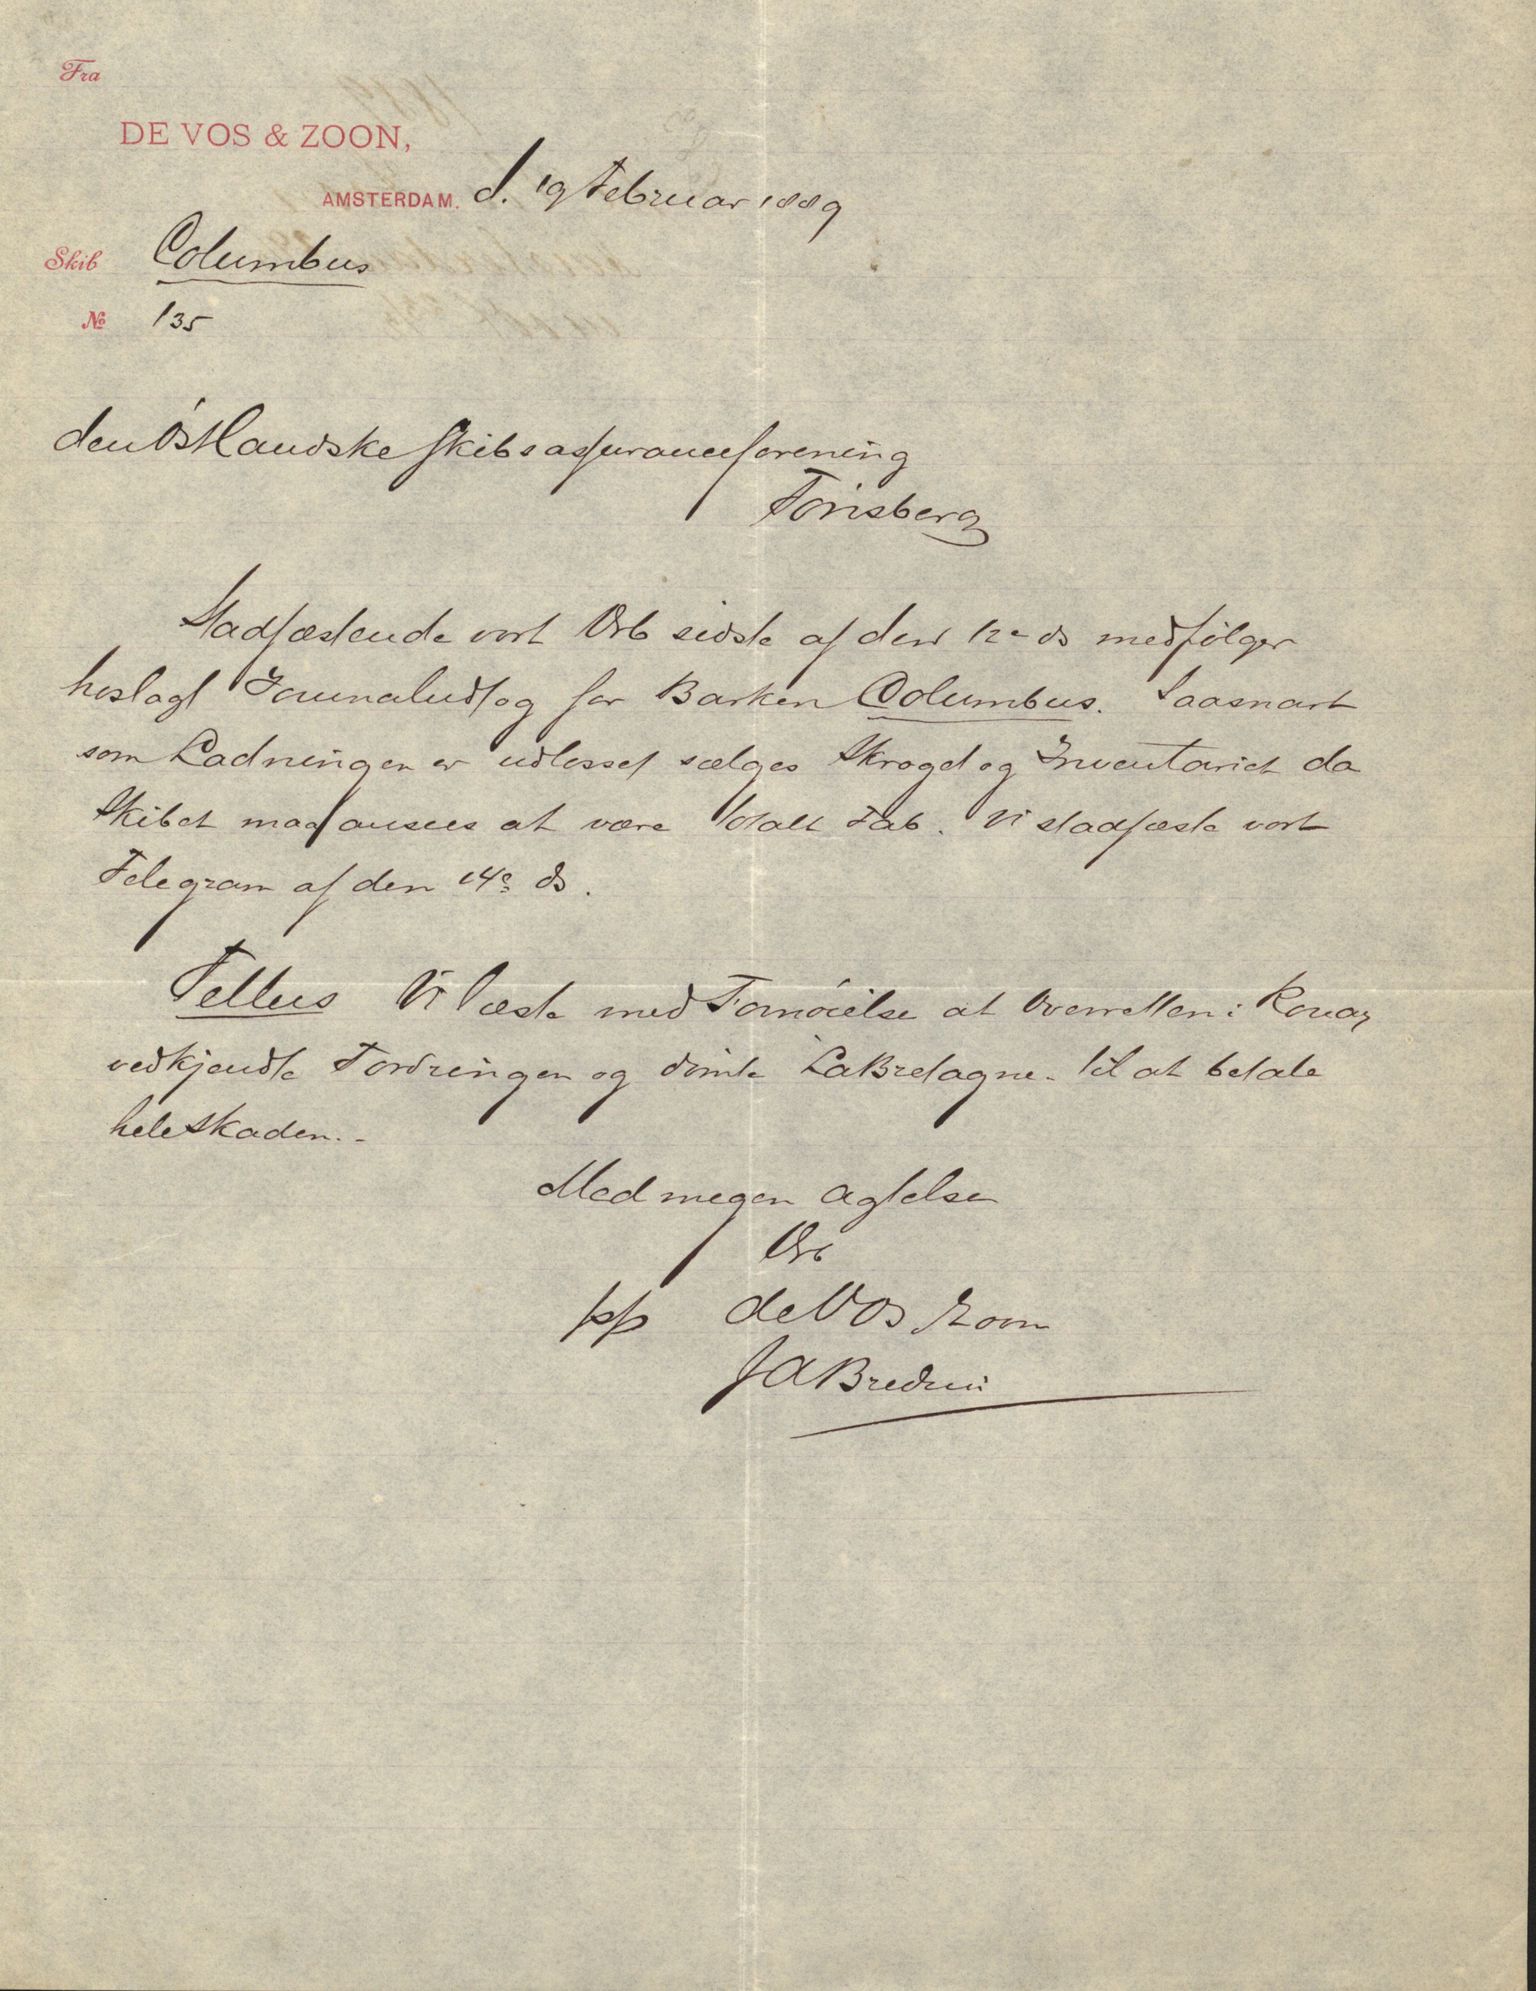 Fra
DE VOS & ZOON,
AMSTERDAM. d. 19 Februar 1889
Skib Columbus
No 135
den Østlandske Skibsassuranceforening
Tönsberg
Stadfæstende vort Erb sidste af den 12e ds medfölger
hoslagt Journaludtog for Barken Columbus. Saasnart
som Ladningen er udlosset sælges Skroget og Inventariet da
Skibet maa ansees at være totalt Tab. Vi stadfæste vort
Telegram af den 14e ds.
Tellus Vi læste med Fornöielse at Overretten i Rouan
vedkjendte Fordringen og dömte LaBretagne. til at betale
hele Skaden. -
Med megen Agtelse
Erb
pp de Vos & Zoon
JA